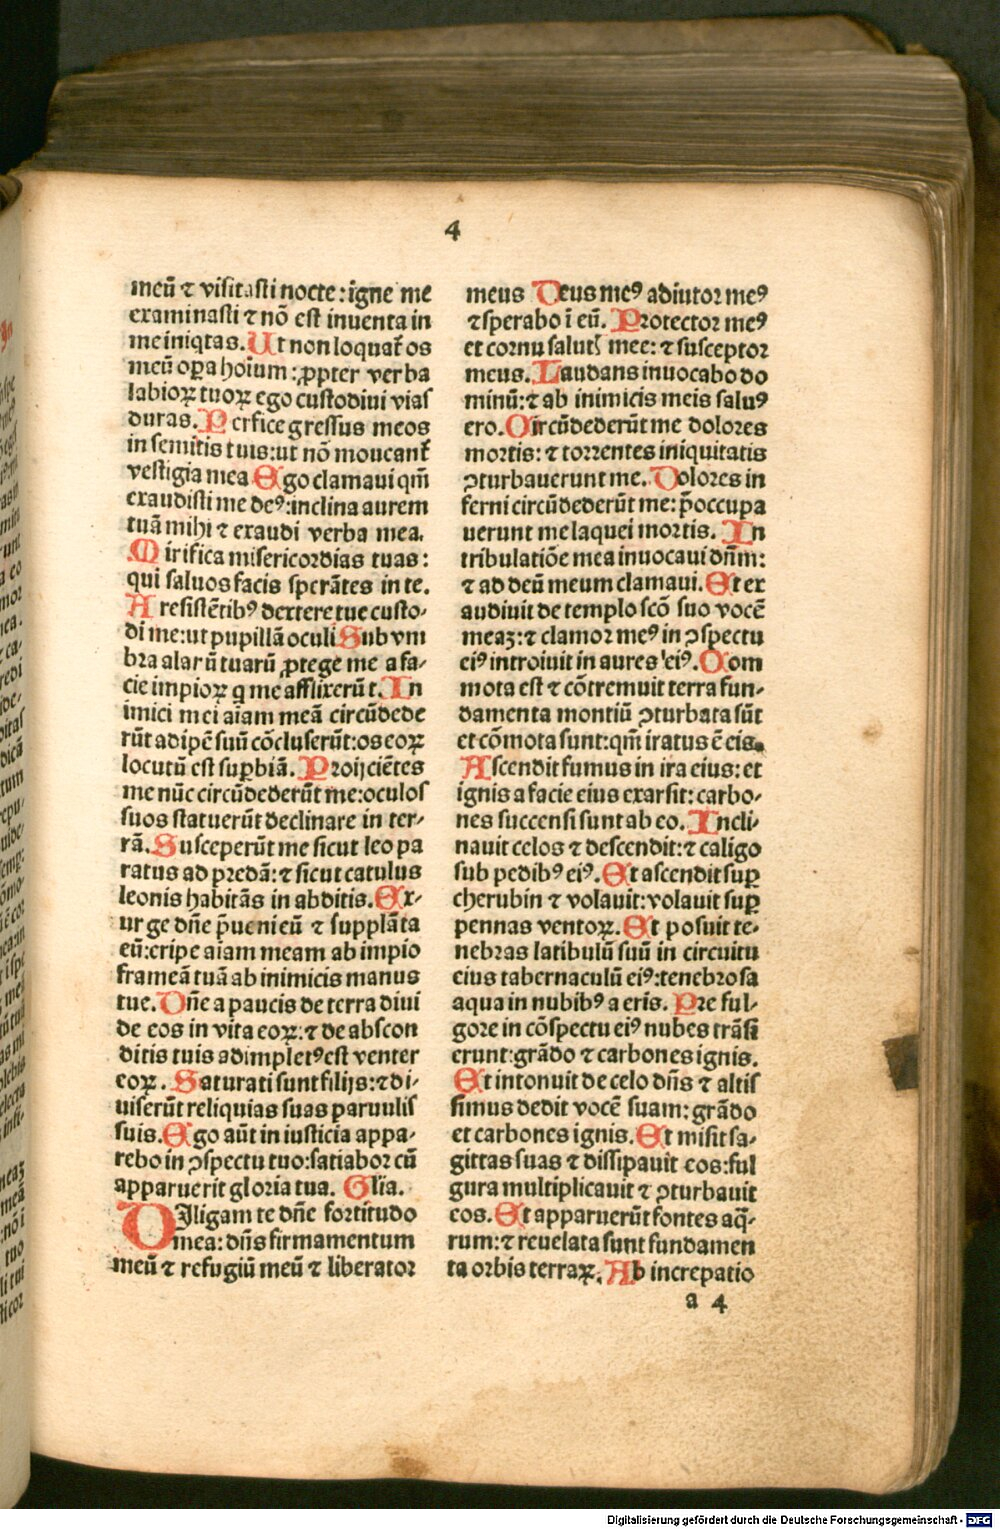 4
meū ⁊ visitasti nocte: igne me
examinasti ⁊ nō est inventa in
me iniqtas. Ut non loquat᷑ os
meū oꝑa hoīum: ꝓpter verba
labioꝝ tuoꝝ ego custodiui vias
duras. Perfice gressus meos
in semitis tuis: ut nō moueant᷑
vestigia mea Ego clamaui qm̄
exaudisti me de⁹: inclina aurem
tuā mihi ⁊ exaudi verba mea.
Mirifica misericordias tuas:
qui saluos facis sperātes in te.
A resistētib⁹ dextere tue custo-
di me: ut pupillā oculi Sub vm
bra alarū tuarū ꝓtege me a fa-
cie impioꝝ q me afflixerūt. In
imici mei aīam meā circūdede
rūt adipē suū cōcluserūt: os eoꝝ
locutū est suꝑbiā. Proijciētes
me nūc circūdederūt me: oculos
suos statuerūt declinare in ter-
rā. Susceperūt me sicut leo pa
ratus ad predā: ⁊ sicut catulus
leonis habitās in abditis. Ex-
urge dn̄e p̄ueni eū ⁊ supplāta
eū: eripe aīam meam ab impio
frameā tuā ab inimicis manus
tue. Dn̄e a paucis de terra diui
de eos in vita eoꝝ: ⁊ de abscon
ditis tuis adimplet⁹ est venter
eoꝝ. Saturati sunt filijs: ⁊ di-
uiserūt reliquias suas paruulis
suis. Ego aūt in iusticia appa-
rebo in ꝯspectu tuo: satiabor cū
apparuerit gloria tua. Glīa.
DIligam te dn̄e fortitudo
mea: dn̄s firmamentum
meū ⁊ refugiū meū ⁊ liberator
meus Deus me⁹ adiutor me⁹
⁊ sperabo ī eū. Protector me⁹
et cornu salutꝭ mee: ⁊ susceptor
meus. Laudans inuocabo do
minū: ⁊ ab inimicis meis salu⁹
ero. Circūdederūt me dolores
mortis: ⁊ torrentes iniquitatis
ꝯturbauerunt me. Dolores in
ferni circūdederūt me: p̄occupa
uerunt me laquei mortis. In
tribulatiōe mea inuocaui dn̄m:
⁊ ad deū meum clamaui. Et ex
audiuit de templo scō suo vocē
meaꝫ: ⁊ clamor me⁹ in ꝯspectu
ei⁹ introiuit in aures ei⁹. Com
mota est ⁊ cōtremuit terra fun-
damenta montiū ꝯturbata sūt
et cōmota sunt: qm̄ iratus ē eis.
Ascendit fumus in ira eius: et
ignis a facie eius exarsit: carbo-
nes succensi sunt ab eo. Incli-
nauit celos ⁊ descendit: ⁊ caligo
sub pedib⁹ ei⁹. Et ascendit suꝑ
cherubin ⁊ volauit: volauit suꝑ
pennas ventoꝝ. Et posuit te-
nebras latibulū suū in circuitu
eius tabernaculū ei⁹: tenebrosa
aqua in nubib⁹ aeris. Pre ful-
gore in cōspectu ei⁹ nubes trāsi
erunt: grādo ⁊ carbones ignis.
Et intonuit de celo dn̄s ⁊ altis
simus dedit vocē suam: grādo
et carbones ignis. Et misit sa-
gittas suas ⁊ dissipauit eos: ful
gura multiplicauit ⁊ ꝯturbauit
eos. Et apparuerūt fontes aq̄-
rum: ⁊ reuelata sunt fundamen
ta orbis terraꝝ. Ab increpatio
a 4
Digitalisierung gefördert durch die Deutsche Forschungsgemeinschaft - DFG